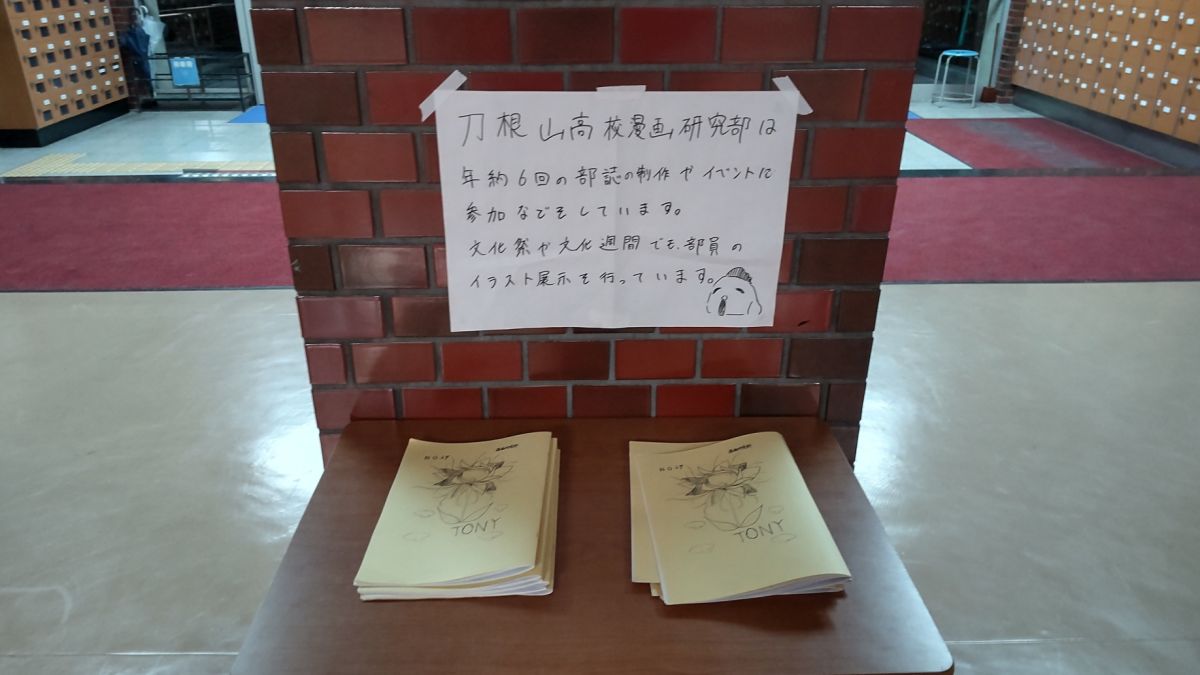 刀根山高校漫画研究部は
年約6回の部誌の制作やイベントに
参加などをしています。
文化祭や文化週間でも、部員の
イラスト展示を行っています。
TONY
TONY